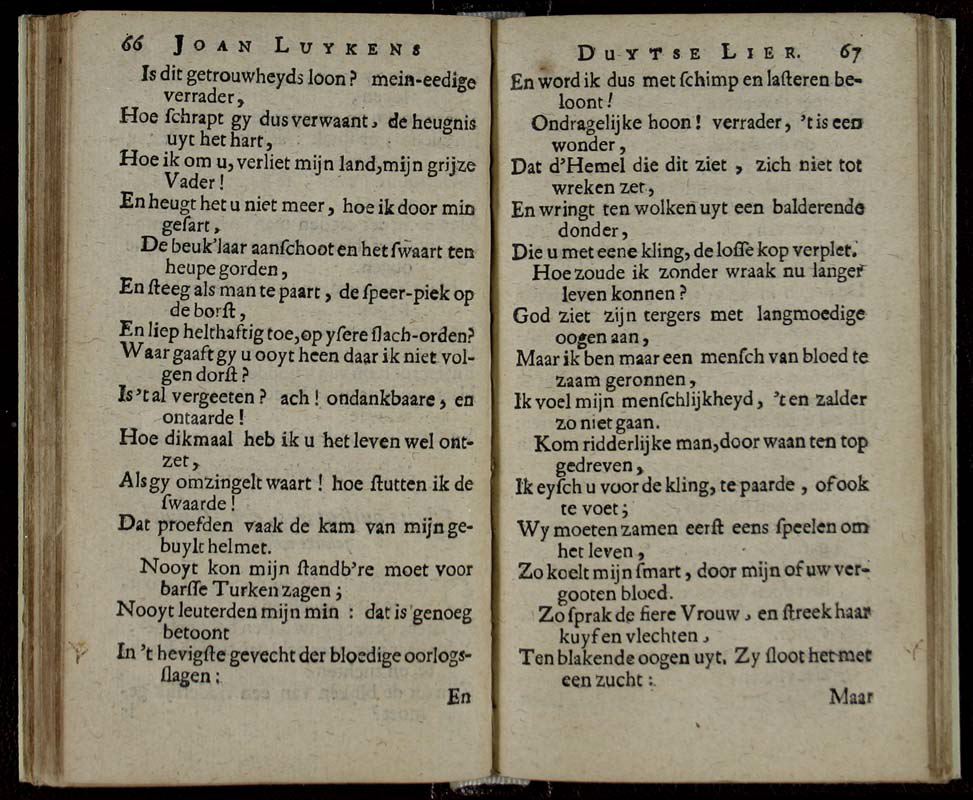 66 JOAN LUYKENS
Is dit getrouwheyds loon? mein-eedige
verrader,
Hoe ſchrapt gy dus verwaant, de heugnis
uyt het hart,
Hoe ik om u, verliet mijn land, mijn grijze
Vader!
En heugt het u niet meer, hoe ik door min
geſart,
De beuk'laar aanſchoot en het ſwaart ten
heupe gorden,
En ſteeg als man te paart, de ſpeer-piek op
de borſt,
En liep helthaftig toe, op yſere ſlach-orden?
Waar gaaft gy u ooyt heen daar ik niet vol-
gen dorſt?
Is't al vergeeten? ach! ondankbaare, en
ontaarde!
Hoe dikmaal heb ik u het leven wel ont-
zet,
Als gy omzingelt waart! hoe ſtutten ik de
ſwaarde!
Dat proefden vaak de kam van mijn ge-
buylt helmet.
Nooyt kon mijn ſtandb're moet voor
barſſe Turken zagen;
Nooyt leuterden mijn min: dat is genoeg
betoont
In 't hevigſte gevecht der bloedige oorlogs-
ſlagen:
En
DUYTSE LIER. 67
En word ik dus met ſchimp en laſteren be-
loont!
Ondragelijke hoon! verrader, 't is een
wonder,
Dat d'Hemel die dit ziet, zich niet tot
wreken zet,
En wringt ten wolken uyt een balderende
donder,
Die u met eene kling, de loſſe kop verplet.
Hoe zoude ik zonder wraak nu langer
leven konnen?
God ziet zijn tergers met langmoedige
oogen aan,
Maar ik ben maar een menſch van bloed te
zaam geronnen,
Ik voel mijn menſchlijkheyd, 't en zal der
zo niet gaan.
Kom ridderlijke man, door waan ten top
gedreven,
Ik eyſch u voor de kling, te paarde, of ook
te voet;
Wy moeten zamen eerſt eens ſpeelen om
het leven,
Zo koelt mijn ſmart, door mijn of uw ver-
gooten bloed.
Zo ſprak de fiere Vrouw, en ſtreek haar
kuyf en vlechten,
Ten blakende oogen uyt. Zy ſloot het met
een zucht:
Maar